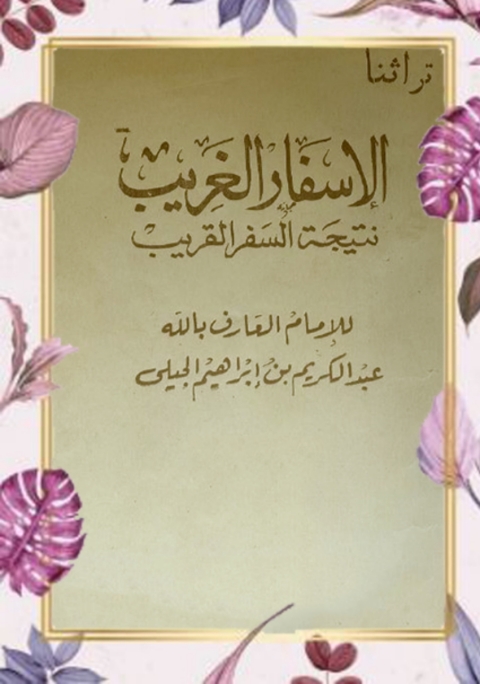 تراثنا
الإسفار الغَريب
نتيجَة السَفر القريبْ
للإمامْ العَارف بالله
عبْد الكريم بنْ إبْراهيمْ الجيلى